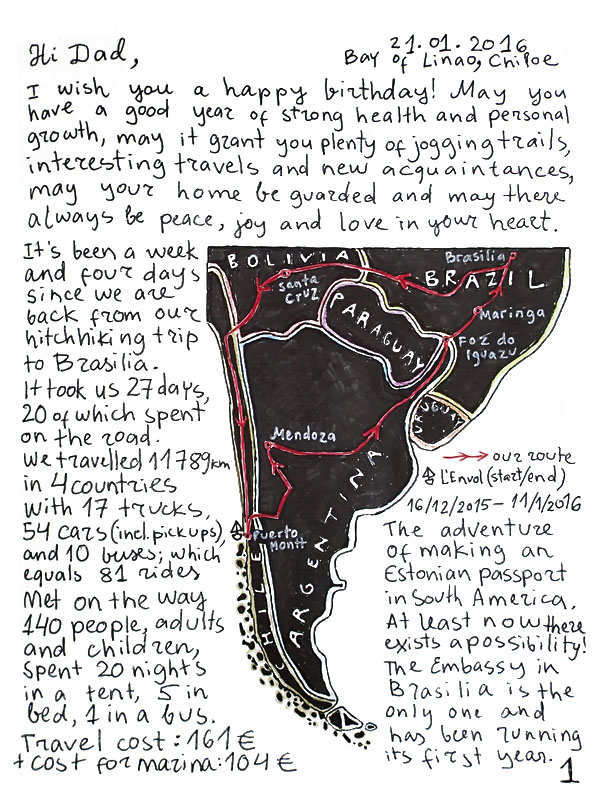 Hi Dad,
21.01.2016
Bay of Linao, Chiloe
I wish you a happy birthday! May you
have a good year of strong health and personal
growth, may it grant you plenty of jogging trails,
interesting travels and new acquaintances,
may your home be guarded and may there
always be peace, joy and love in your heart.
It's been a week
and four days
since we are
back from our
hitchhiking trip
to Brasilia.
It took us 27 days,
20 of which spent
on the road.
We travelled 11789km
in 4 countries
with 17 trucks,
54 cars (incl. pickups),
and 10 buses; which
equals 81 rides
Met on the way
140 people, adults
and children,
spent 20 nights
in a tent, 5 in
bed, 1 in a bus.
Travel cost: 161 €
+ cost for marina: 104 €
BOLIVIA
Santa
Cruz
Brasilia
BRAZIL
PARAGUAY
Maringa
Foz do
Iguazu
URUGUAY
Mendoza
ARGENTINA
Puerto
Montt
CHILE
our route
L'Envol (start/end)
16/12/2015 – 11/1/2016
The adventure
of making an
Estonian passport
in South America.
At least now there
exists a possibility!
The Embassy in
Brasilia is the
only one and
has been running
its first year.
1